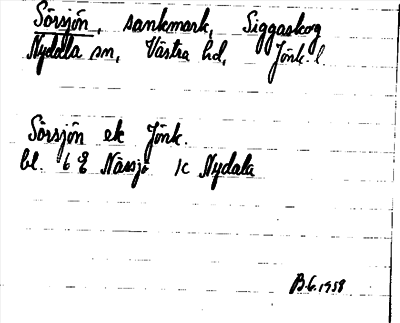 Sörsjön, sankmark, Siggaskog
Nydala sn, Västra hd, Jönk. l.
Sörsjön ek Jönk.
bl. 6 E Nässjö 1c Nydala
B.G. 1958